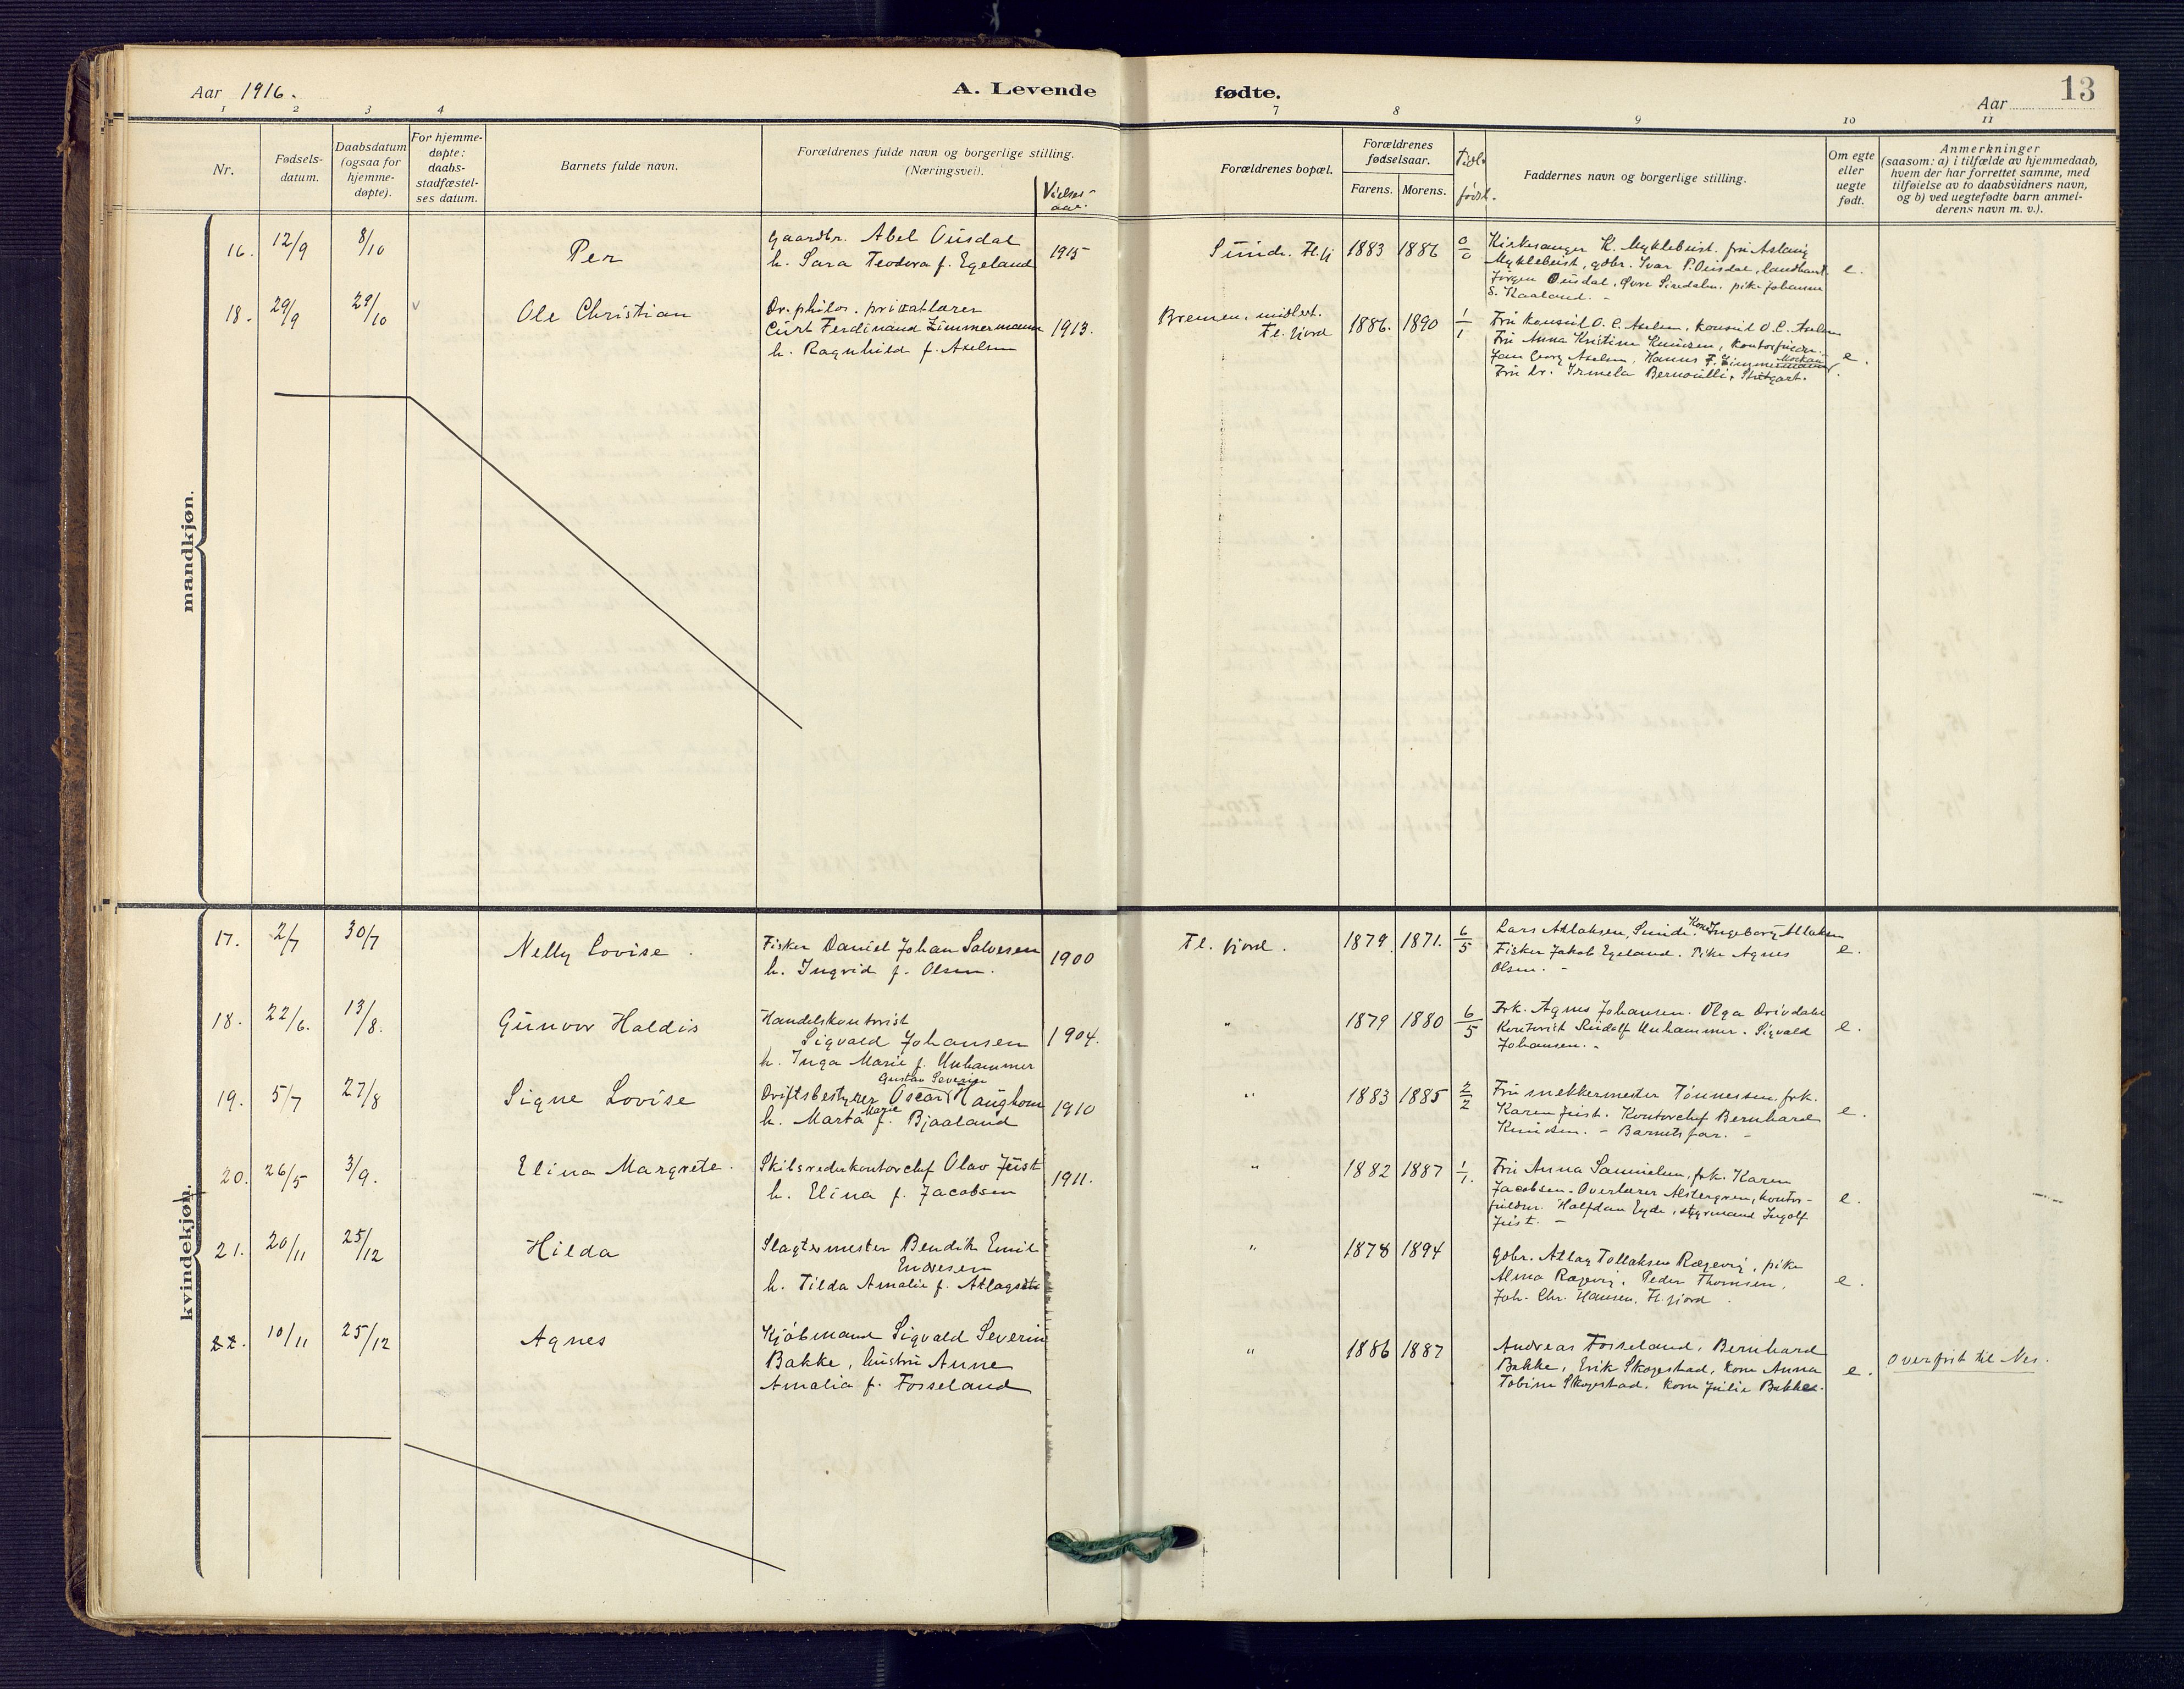 Aar 1916.
A. Levende fødte.
Aar
13
1 2 3 4 7 8 9 10 11
Nr.
Fødsels-
datum.
Daabsdatum
(ogsaa for
hjemme-
døpte).
For hjemme-
døpte:
daabs-
stadfæstel-
ses datum.
Barnets fulde navn.
Forældrenes fulde navn og borgerlige stilling.
(Næringsvei).
Vielses-
aar.
Forældrenes bopæl.
Forældrenes
fødselsaar.
Farens. Morens.
Tidl.
født.
Faddernes navn og borgerlige stilling.
Om egte
eller
uegte
født.
Anmerkninger
(saasom: a) i tilfælde av hjemmedaab,
hvem der har forrettet samme, med
tilføielse av to daabsvidners navn,
og b) ved uegtefødte barn anmel-
derens navn m. v.).
mandkjøn.
16. 12/9 8/10 Per
Gaardbr. Abel Ousdal
h. Sara Teodora f. Egeland
1915
Sunde. Fl.fj 1883 1886 0/0
Kirkesanger K. Myklebust. fru Aslaug
Myklebust, gdbr. Ivar P. Ousdal, landhandl.
Jörgen Ousdal, Øvre Siredalen. pike Johanne
S. Kaaland. -
e.
18. 29/9 29/10 v Ole Christian
Dr. philos. privatlærer
Curt Ferdinand Zimmermann
h. Ragnhild f. Axelsen
1913.
Bremen, midlert.
Fl. fjord
1886. 1890 1/1
Fru Konsul O. C. Axelsen, Konsul O. C. Axelsen
Fru Anna Kristine Knudsen, Kontorfuldm.
Jan Georg Axelsen, Hanns F. Zimmermann
Fru Dr. Irmela Bernoulli, Stutgart.
e.
kvindekjøn.
17. 2/7 30/7 Nelly Lovise.
Fisker Daniel Johan Salvesen
h. Ingrid f. Olsen.
1900
Fl. fjord. 1879 1871. 6/5
Lars Atlaksen, Sunde. Kone Ingeborg Atlaksen
Fisker Jakob Egeland. Pike Agnes
Olsen. -
e.
18. 22/6. 13/8. Gunvor Haldis
Handelskontorist
Sigvald Johansen
h. Inga Marie f. Unhammer
1904.
" 1879 1880 6/5
Frk. Agnes Johansen. Olga Drivdahl
Kontorist Rudolf Unhammer. Sigvald
Johansen. -
e.
19. 5/7 27/8 Signe Lovise
Gustav Severin
Driftsbestyrer Oscar Haughom
h. Marta Marie f. Bjaaland
1910
" 1883 1885 2/2
Fru snekkermester Tönnessen. frk.
Karen Just. Kontorchef Bernhard
Knudsen. - Barnets far. -
e.
20. 26/5 3/9. Elina Margrete.
Skibsrederkontorchef Olav Just
h. Elina f. Jacobsen
1911.
" 1882 1887 1/1.
Fru Anna Samuelsen, frk. Karen
Jacobsen. Overlærer Alstergren, kontor-
fuldm. Halfdan Eyde, styrmand Ingolf
Just. -
e.
21. 20/11 25/12 Hilda
Slagtermester Bendik Emil
Endresen
h. Tilda Amalie f. Atlagsdtr
" 1878 1894
Gdbr. Atlag Tollaksen Rægevig, pike
Alma Rægevig, Peder Thomsen,
Joh. Chr. Hansen, Fl. fjord.
e.
22. 10/11 25/12 Agnes
Kjøbmand Sigvald Severin
Bakke, hustru Anne
Amalia f. Fosseland
" 1886 1887
Andreas Fosseland, Bernhard
Bakke, Erik Skogestad, kone Anna
Tobine Skogestad. kone Julie Bakke.
e.
Overført til Nes.